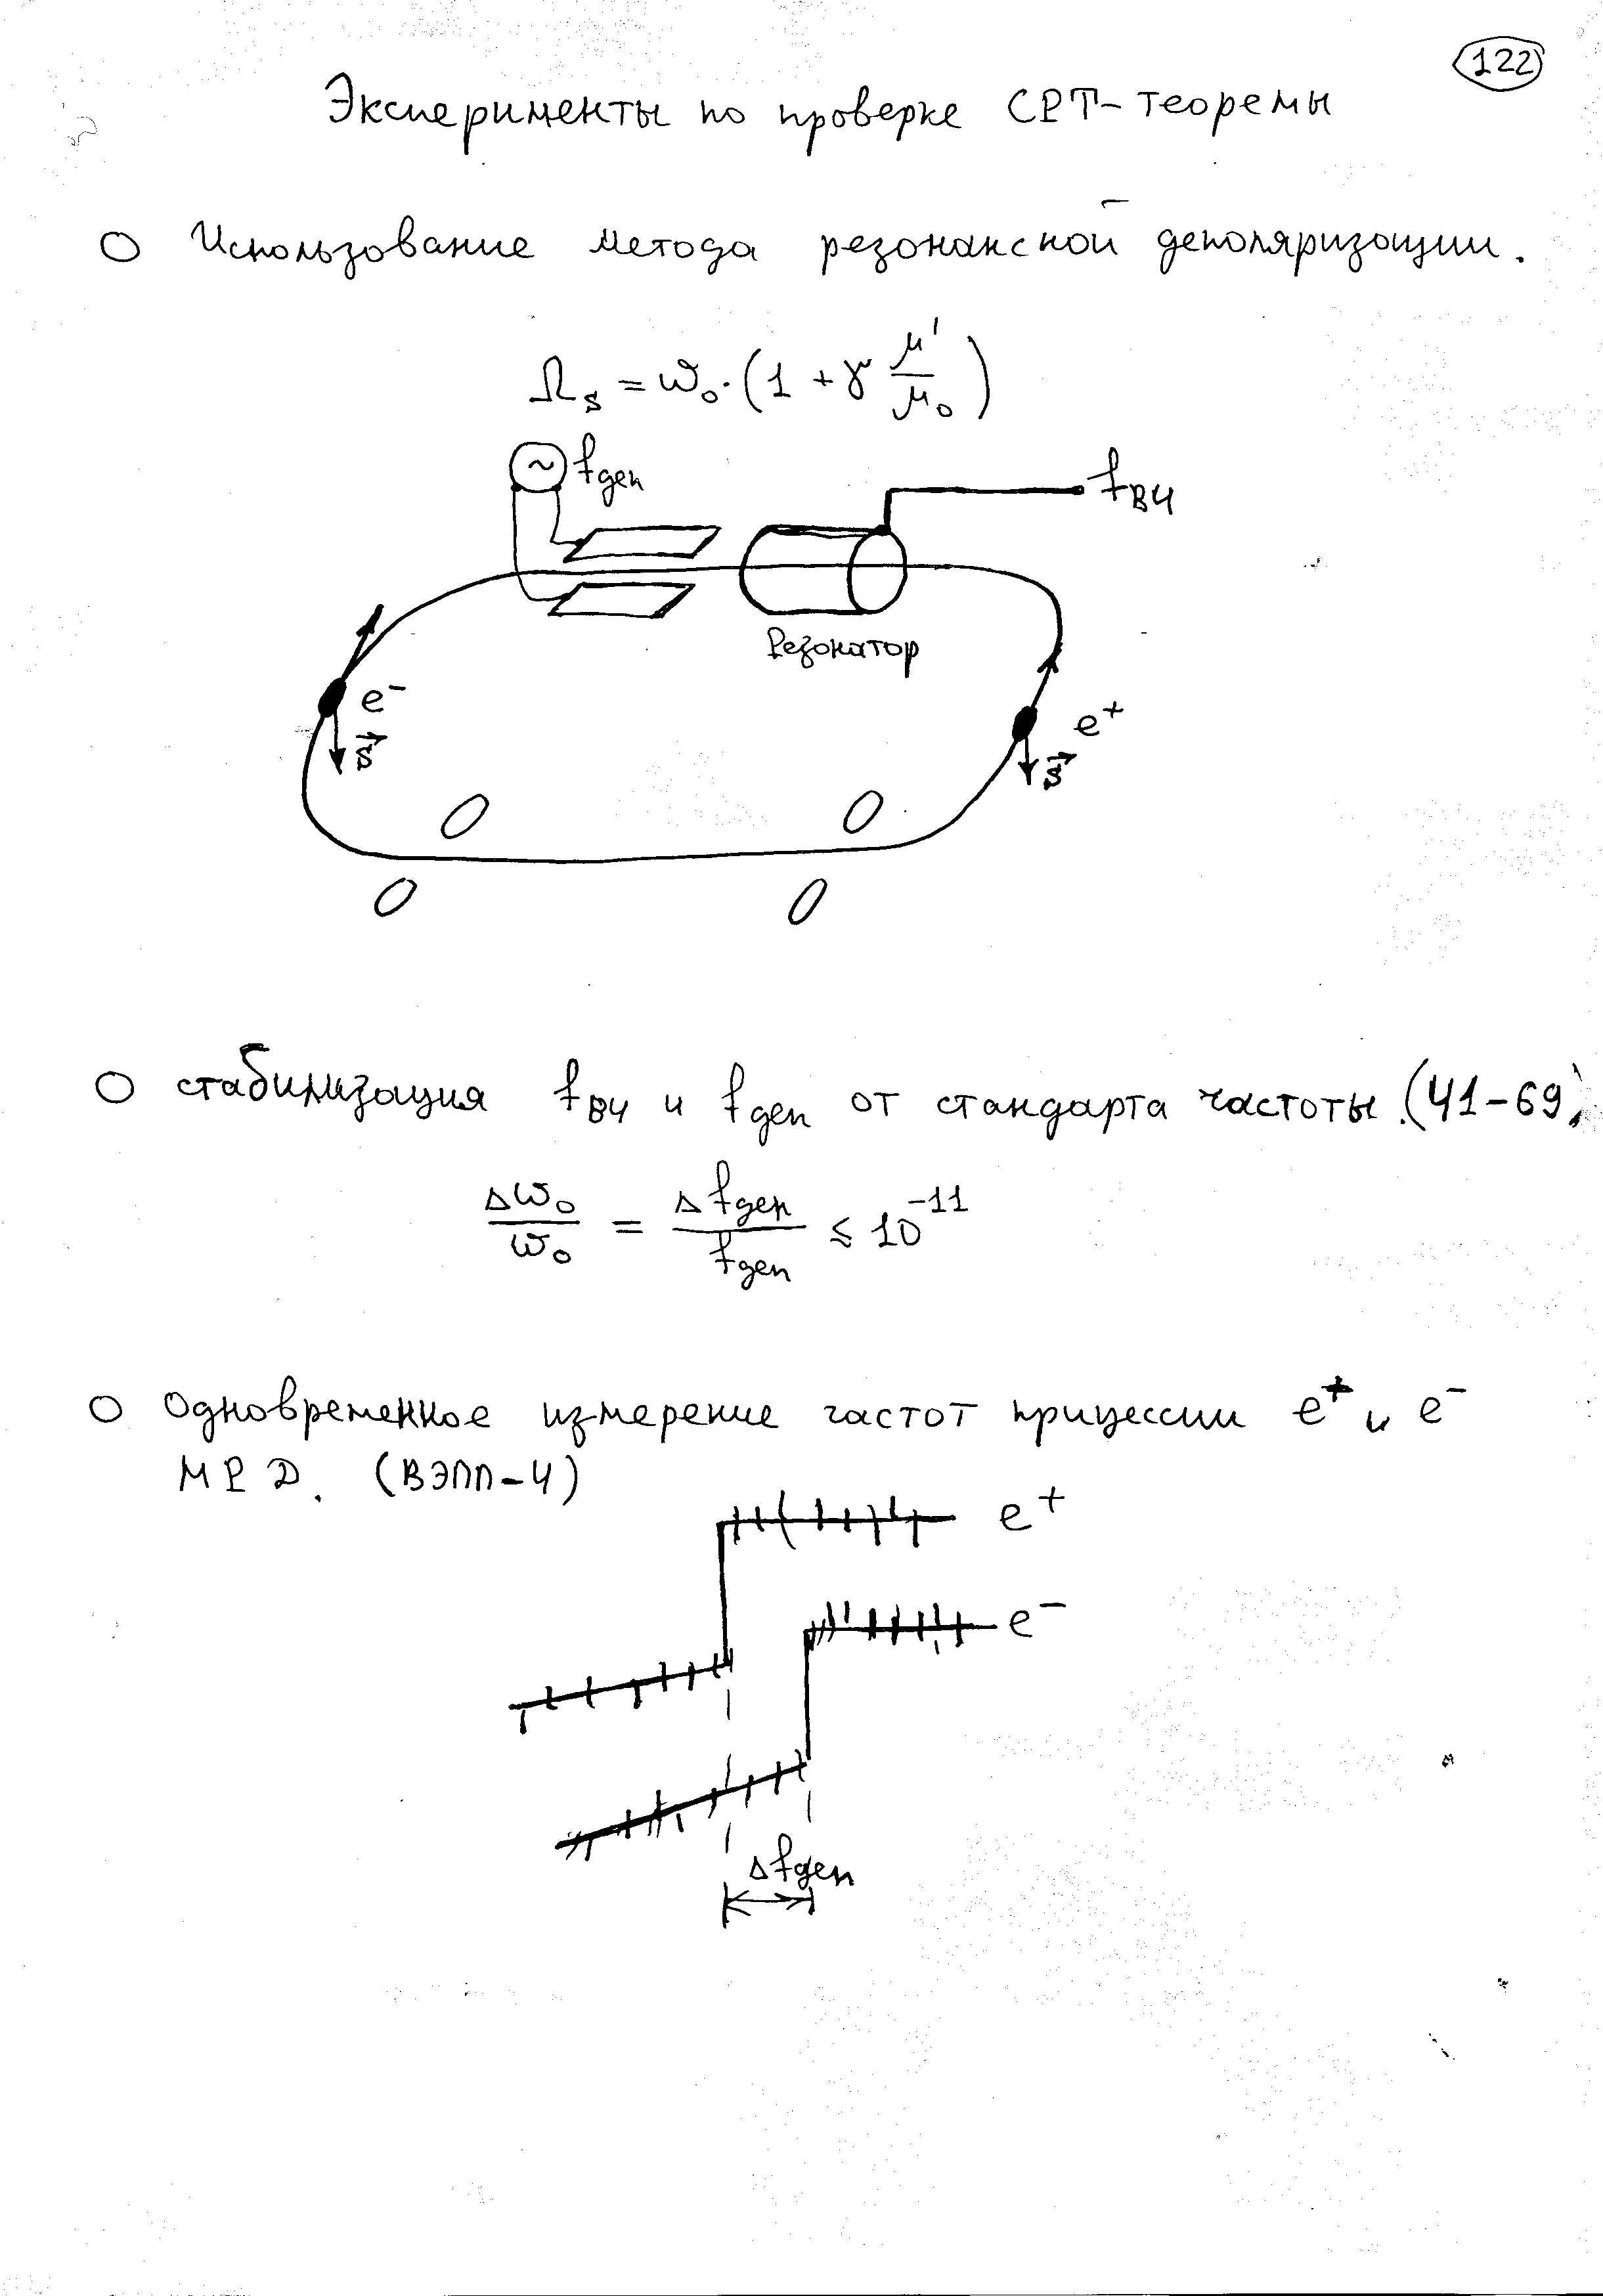 122
Эксперименты по проверке CPT-теоремы
Использование метода резонансной деполяризации.
Ωs = ω₀·(1 + γ μ'/μ₀)
~ fдеп
fВЧ
Резонатор
e⁻
s⃗
e⁺
s⃗
стабилизация fВЧ и fдеп от стандарта частоты (Ч1-69)
Δω₀/ω₀ = Δfдеп/fдеп ≤ 10⁻¹¹
Одновременное измерение частот прицессии e⁺ и e⁻
МРД. (ВЭПП-4)
e⁺
e⁻
Δfдеп